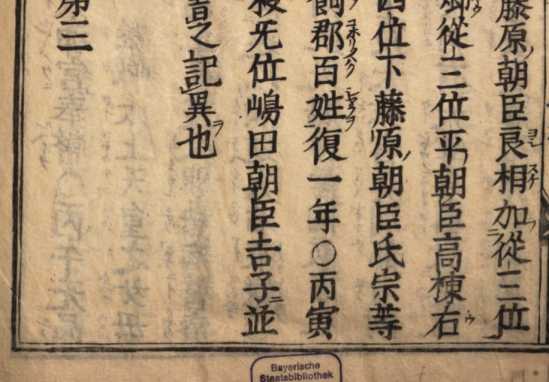 藤原ノ朝臣良相加從三位
卿從三位平朝臣高棟右
四位下藤原ノ朝臣氏宗等
飼郡百姓復一年○丙寅
授无位嶋田朝臣吉子並
之記異也
第三
Bayerische
Staatsbibliothek